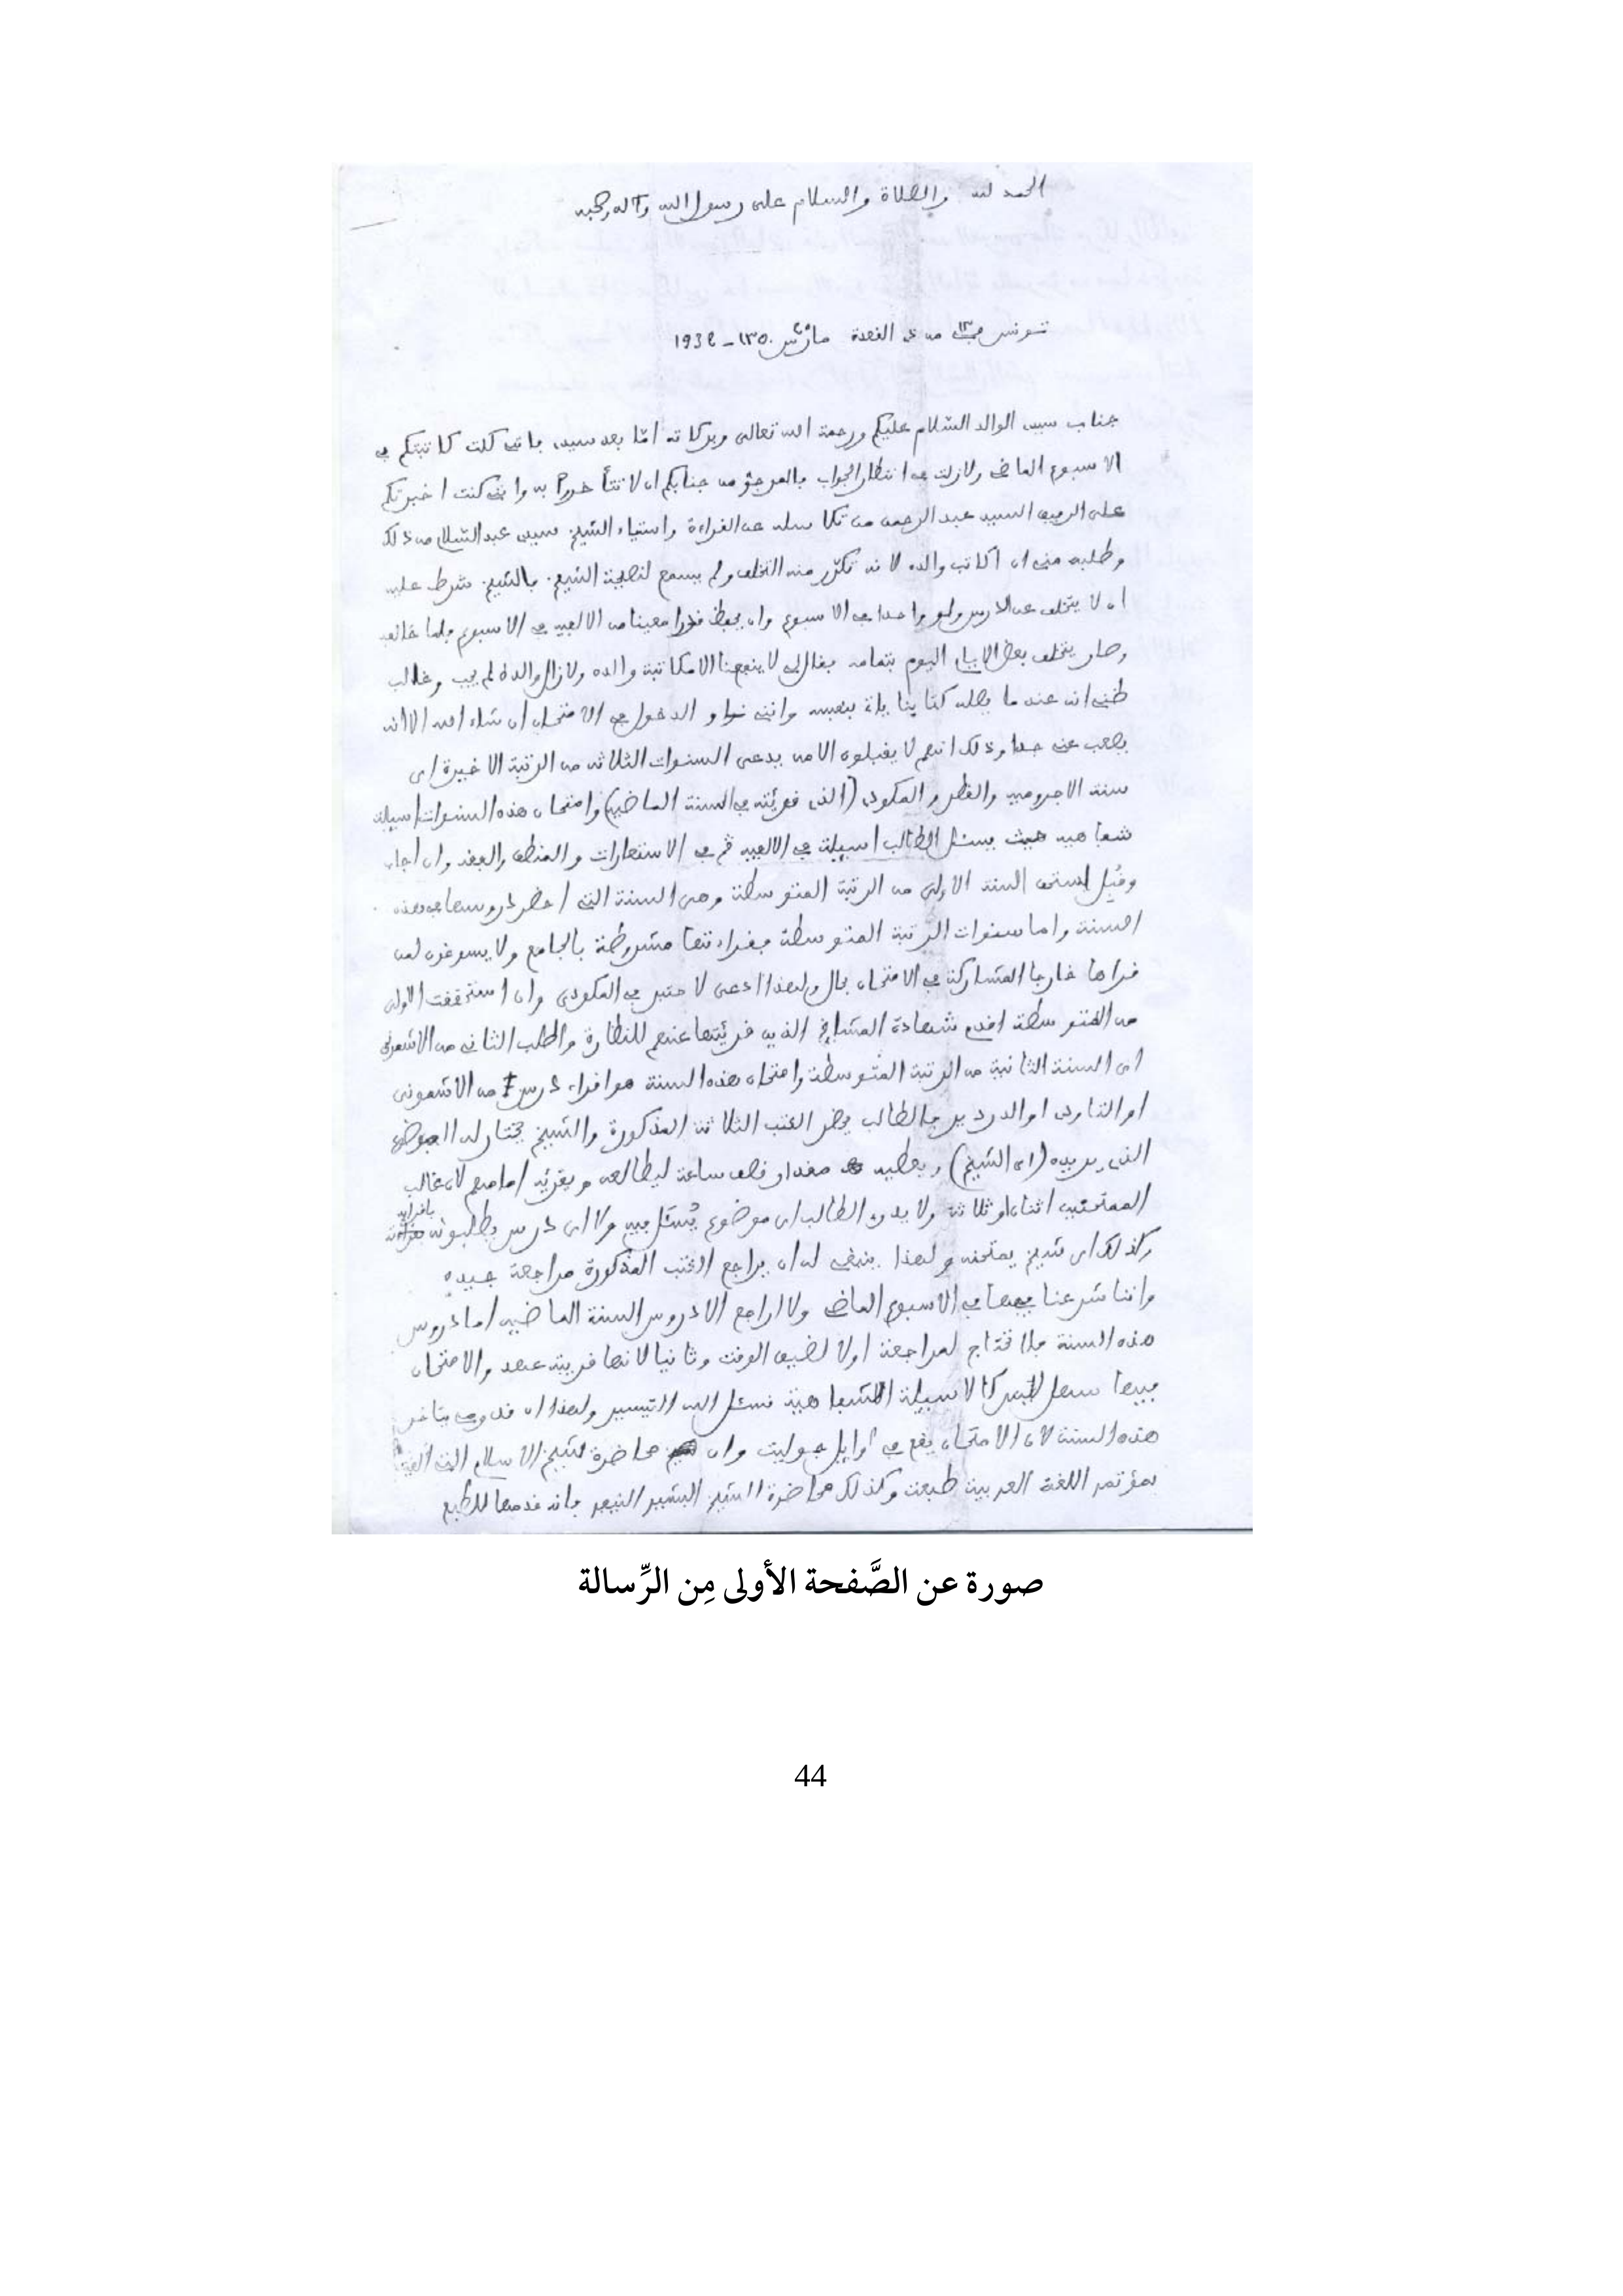 الحمد لله والصلاة والسلام على رسول الله وآله وصحبه
تونس من ذي القعدة مارس ١٣٥٠ - 1932
جناب سيدي الوالد السّلام عليكم ورحمة الله تعالى وبركاته امّا بعد سيدي فاني كنت كاتبتكم في
الاسبوع الماضي ولازلت في انتظار الجواب فالمرجوّ من جنابكم ان لا تتأخروا به وانني كنت اخبرتكم
على الربيب السيد عبد الرحمن من تكاسله عن القراءة واستياء الشيخ سيدي عبد السّلام من ذلك
وطلبه مني ان اكاتب والده لانه تكرّر منه التخلف ولم يسمع لنصيحة الشيخ فالشيخ شرط عليه
ان لا يتخلف عن الدرس ولو واحدا في الاسبوع وان يحفظ قدرا معينا من الالفية في الاسبوع فلما خالفه
وصار يتخلف بعض الايام اليوم بتمامه فقال لي لا ينفعنا الا مكاتبة والده ولازال والده لم يجب وغالب
ظني انه عند ما يصله كتابنا ياتي بنفسه وانني نواو الدخول في الامتحان ان شاء الله الا انه
يصعب عني جدا وذلك انهم لا يقبلون الا من يدعى السنوات الثلاثة من الرتبة الاخيرة اى
سنة الاجرومية والقطر والمكودي (الذي قرئته في السنة الماضية) وامتحان هذه السنوات اسيلة
شفاهية حيث يسئل الطالب اسيلة في الالفية ثم في الاستعارات والمنطق والفقه وان اجاب
وقُبل استحق السنة الاولى من الرتبة المتوسطة وهي السنة التي احضر دروسها في هذه
السنة واما سنوات الرتبة المتوسطة فقراءتها مشروطة بالجامع ولا يسوغون لمن
قراها خارجا المشاركة في الامتحان بحال ولهذا ادعى لاختبر في المكودي وان استحققت الاولى
من المتوسطة اقدم شهادة المشايخ الذين قرئتها عنهم للنظارة واطلب الثاني من الاشموني
اى السنة الثانية من الرتبة المتوسطة وامتحان هذه السنة هو اقراء درس من الاشموني
او التاودي او الدردير فالطالب يحضر الكتب الثلاثة المذكورة والشيخ يختار له الموضع
الذي يريده (اى الشيخ) ويعطيه مقدار نصف ساعة ليطالعه ويقرئه امامهم لان غالب
الممتحنين اثنان او ثلاثة ولا يدري الطالب اى موضوع يُسئل فيه ولا اى درس يطلبونه باقرايه
وكذلك اى شيخ يمتحنه ولهذا ينبغي له ان يراجع الكتب المذكورة مراجعة جيدة
واننا شرعنا فيها في الاسبوع الماضي ولا اراجع الا دروس السنة الماضية اما دروس
هذه السنة فلا تحتاج لمراجعة اولا لضيق الوقت وثانيا لانها قريبة عهد والامتحان
فيها سهل ليس كالاسيلة الشفاهية نسئل الله التيسير ولهذا ان قدومي يتاخر
هذه السنة لان الامتحان يقع في اوايل جوليت وان محاضرة شيخ الاسلام التي القيها
بمؤتمر اللغة العربية طبعت وكذلك محاضرة الشيخ البشير النيفر فانه قدمها للطبع
صورة عن الصَّفحة الأولى مِن الرِّسالة
44